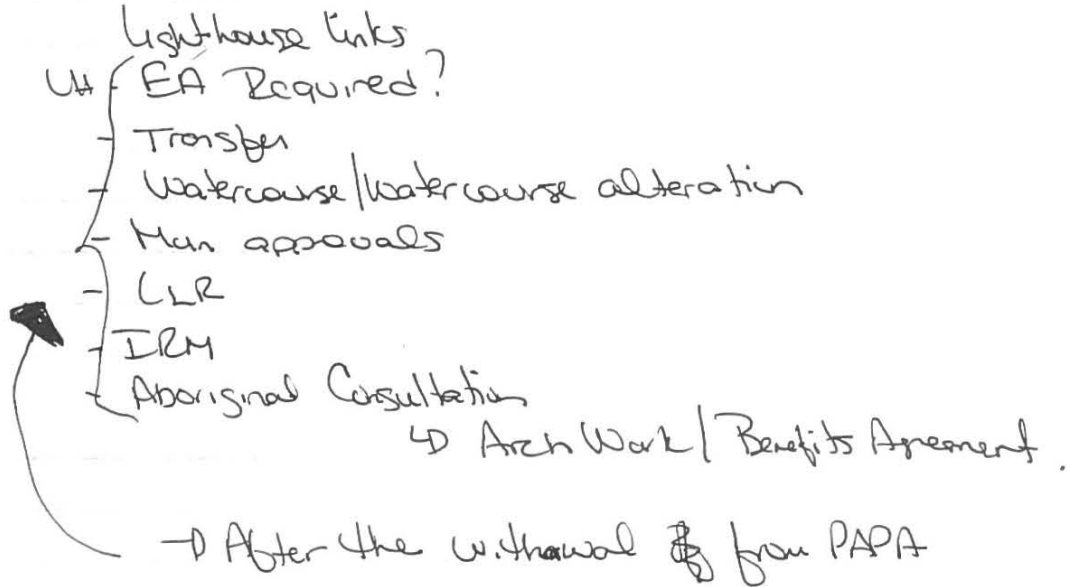 Lighthouse Links
EA Required?
- Transfer
- Watercourse/Watercourse alteration
- Mun approvals
- CLR
- IRM
- Aboriginal Consultation
↳ Arch Work / Benefits Agreement.
→ After the withawal from PAPA